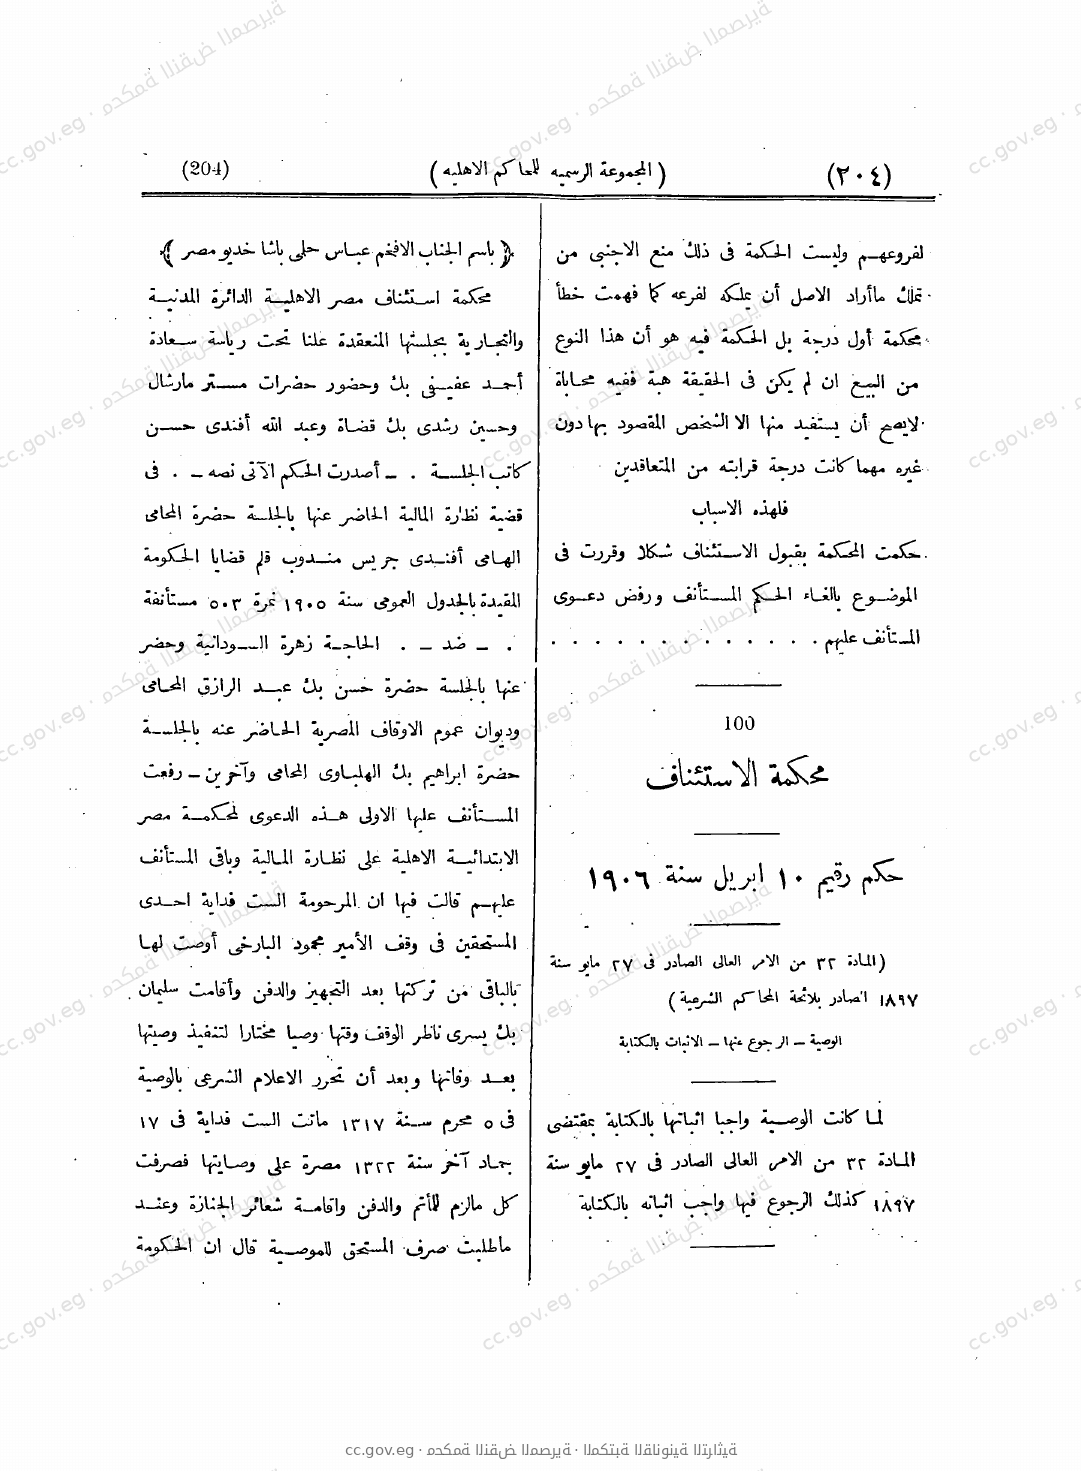 (٢٠٤)
(المجموعة الرسمية للمحاكم الاهلية)
(204)
لفروعهم وليست الحكمة فى ذلك منع الاجنبى من
تملك ماأراد الاصل أن يملكه لفرعه كما فهمت خطأ
محكمة أول درجة بل الحكمة فيه هو أن هذا النوع
من البيع ان لم يكن فى الحقيقة هبة ففيه محاباة
لايصح أن يستفيد منها الا الشخص المقصود بها دون
غيره مهما كانت درجة قرابته من المتعاقدين
فلهذه الاسباب
حكمت المحكمة بقبول الاستئناف شكلا وقررت فى
الموضوع بالغاء الحكم المستأنف ورفض دعوى
المستأنف عليهم . . . . . . . . . . .
100
محكمة الاستئناف
حكم رقيم ١٠ ابريل سنة ١٩٠٦
(المادة ٣٢ من الامر العالى الصادر فى ٢٧ مايو سنة
١٨٩٧ الصادر بلائحة المحاكم الشرعية)
الوصية – الرجوع عنها – الاثبات بالكتابة
لما كانت الوصية واجبا اثباتها بالكتابة بمقتضى
المادة ٣٢ من الامر العالى الصادر فى ٢٧ مايو سنة
١٨٩٧ كذلك الرجوع فيها واجب اثباته بالكتابة
﴿باسم الجناب الافخم عباس حلمى باشا خديو مصر﴾
محكمة استئناف مصر الاهلية الدائرة المدنية
والتجارية بجلستها المنعقدة علنا تحت رياسة سعادة
أحمد عفيفى بك وحضور حضرات مستر مارشال
وحسين رشدى بك قضاة وعبد الله أفندى حسن
كاتب الجلسة . – أصدرت الحكم الآتى نصه – . فى
قضية نظارة المالية الحاضر عنها بالجلسة حضرة المحامى
الهامى أفندى جريس مندوب قلم قضايا الحكومة
المقيدة بالجدول العمومى سنة ١٩٠٥ نمرة ٥٠٣ مستأنفة
. – ضد – . الحاجة زهرة السودانية وحضر
عنها بالجلسة حضرة حسن بك عبد الرازق المحامى
وديوان عموم الاوقاف المصرية الحاضر عنه بالجلسة
حضرة ابراهيم بك الهلباوى المحامى وآخرين – رفعت
المستأنف عليها الاولى هذه الدعوى لمحكمة مصر
الابتدائية الاهلية على نظارة المالية وباقى المستأنف
عليهم قالت فيها ان المرحومة الست فداية احدى
المستحقين فى وقف الأمير محمود البارخى أوصت لها
بالباقى من تركتها بعد التجهيز والدفن وأقامت سليمان
بك يسرى ناظر الوقف وقتها وصيا مختارا لتنفيذ وصيتها
بعد وفاتها وبعد أن تحرر الاعلام الشرعى بالوصية
فى ٥ محرم سنة ١٣١٧ ماتت الست فداية فى ١٧
جماد آخر سنة ١٣٢٢ مصرة على وصايتها فصرفت
كل مالزم للمأتم والدفن واقامة شعائر الجنازة وعند
ماطلبت صرف المستحق للموصية قال ان الحكومة
cc.gov.eg · محكمة النقض المصرية · المكتبة القانونية التراثية